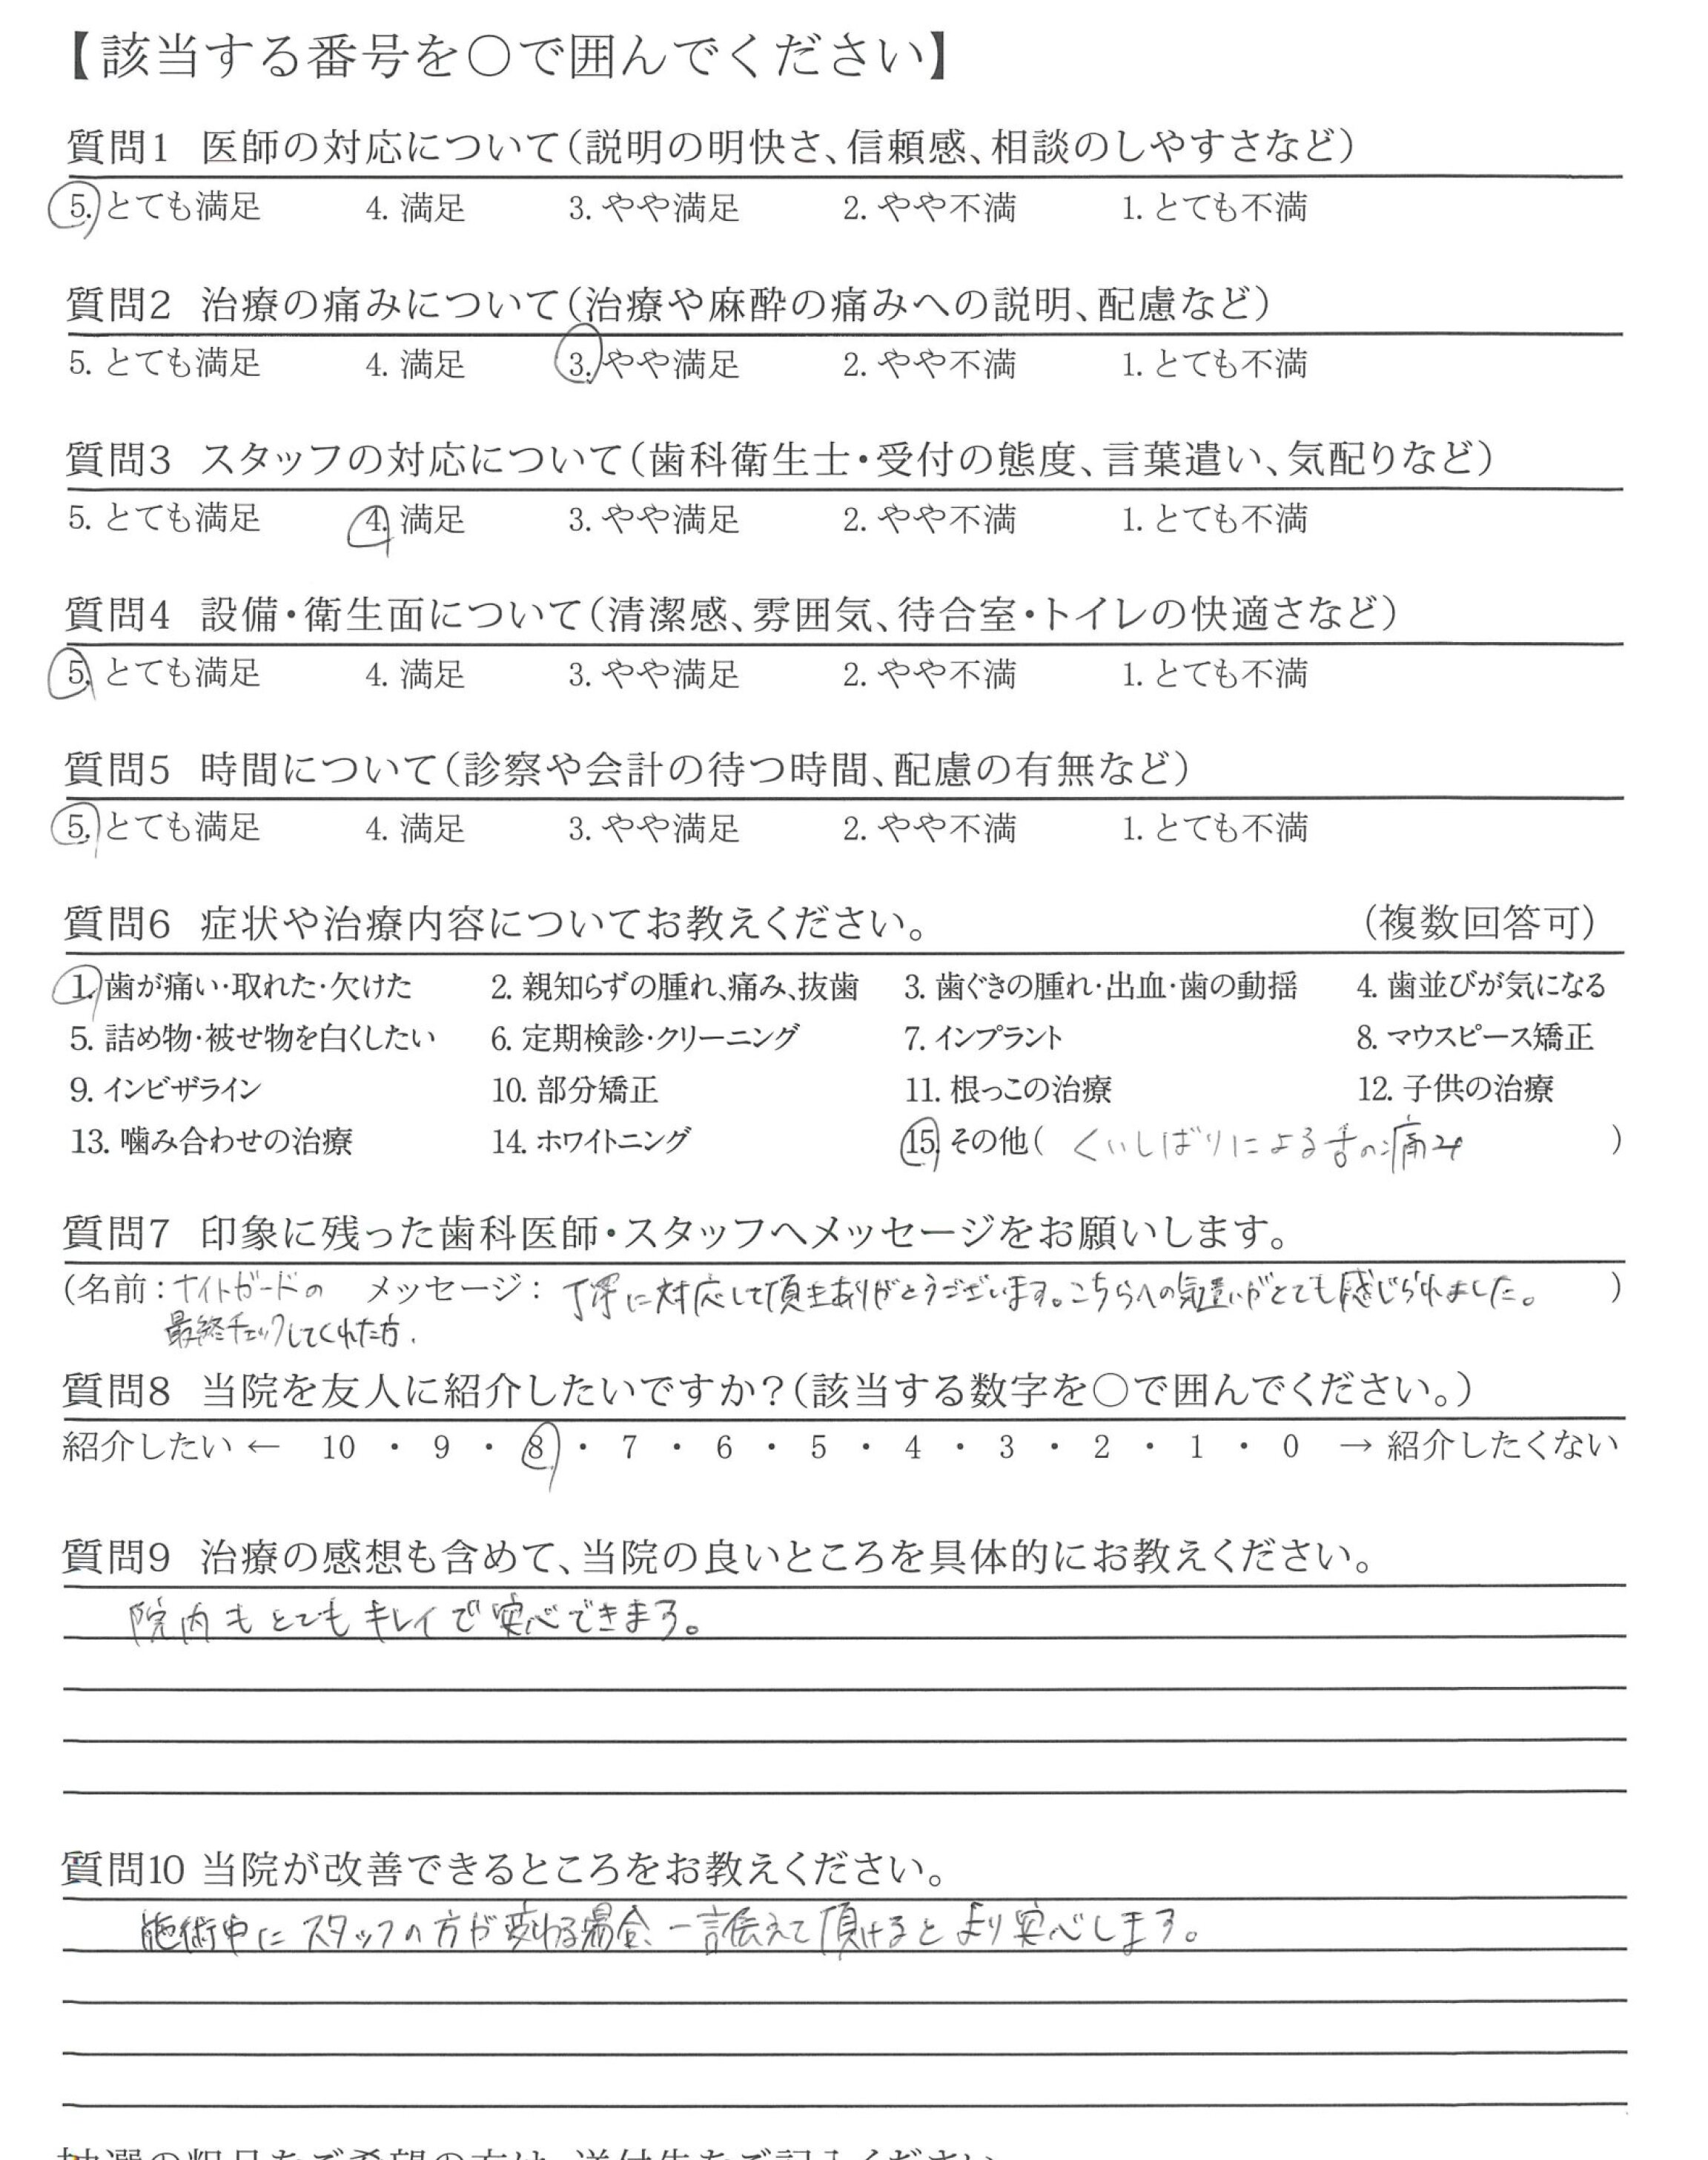 【該当する番号を○で囲んでください】
質問1 医師の対応について(説明の明快さ、信頼感、相談のしやすさなど)
5. とても満足 4. 満足 3. やや満足 2. やや不満 1. とても不満
質問2 治療の痛みについて(治療や麻酔の痛みへの説明、配慮など)
5. とても満足 4. 満足 3. やや満足 2. やや不満 1. とても不満
質問3 スタッフの対応について(歯科衛生士・受付の態度、言葉遣い、気配りなど)
5. とても満足 4. 満足 3. やや満足 2. やや不満 1. とても不満
質問4 設備・衛生面について(清潔感、雰囲気、待合室・トイレの快適さなど)
5. とても満足 4. 満足 3. やや満足 2. やや不満 1. とても不満
質問5 時間について(診察や会計の待つ時間、配慮の有無など)
5. とても満足 4. 満足 3. やや満足 2. やや不満 1. とても不満
質問6 症状や治療内容についてお教えください。 (複数回答可)
1. 歯が痛い・取れた・欠けた 2. 親知らずの腫れ、痛み、抜歯 3. 歯ぐきの腫れ・出血・歯の動揺 4. 歯並びが気になる
5. 詰め物・被せ物を白くしたい 6. 定期検診・クリーニング 7. インプラント 8. マウスピース矯正
9. インビザライン 10. 部分矯正 11. 根っこの治療 12. 子供の治療
13. 噛み合わせの治療 14. ホワイトニング 15. その他( くいしばりによる舌の痛み )
質問7 印象に残った歯科医師・スタッフへメッセージをお願いします。
(名前:ナイトガードの メッセージ: 丁寧に対応して頂きありがとうございます。こちらへの気遣いがとても感じられました。 )
最終チェックしてくれた方.
質問8 当院を友人に紹介したいですか?(該当する数字を○で囲んでください。)
紹介したい ← 10 ・ 9 ・ 8 ・ 7 ・ 6 ・ 5 ・ 4 ・ 3 ・ 2 ・ 1 ・ 0 → 紹介したくない
質問9 治療の感想も含めて、当院の良いところを具体的にお教えください。
院内もとてもキレイで安心できます。
質問10 当院が改善できるところをお教えください。
施術中にスタッフの方が変わる場合、一言伝えて頂けるとより安心します。
抽選の粗品をご希望の方は、送付先をご記入ください